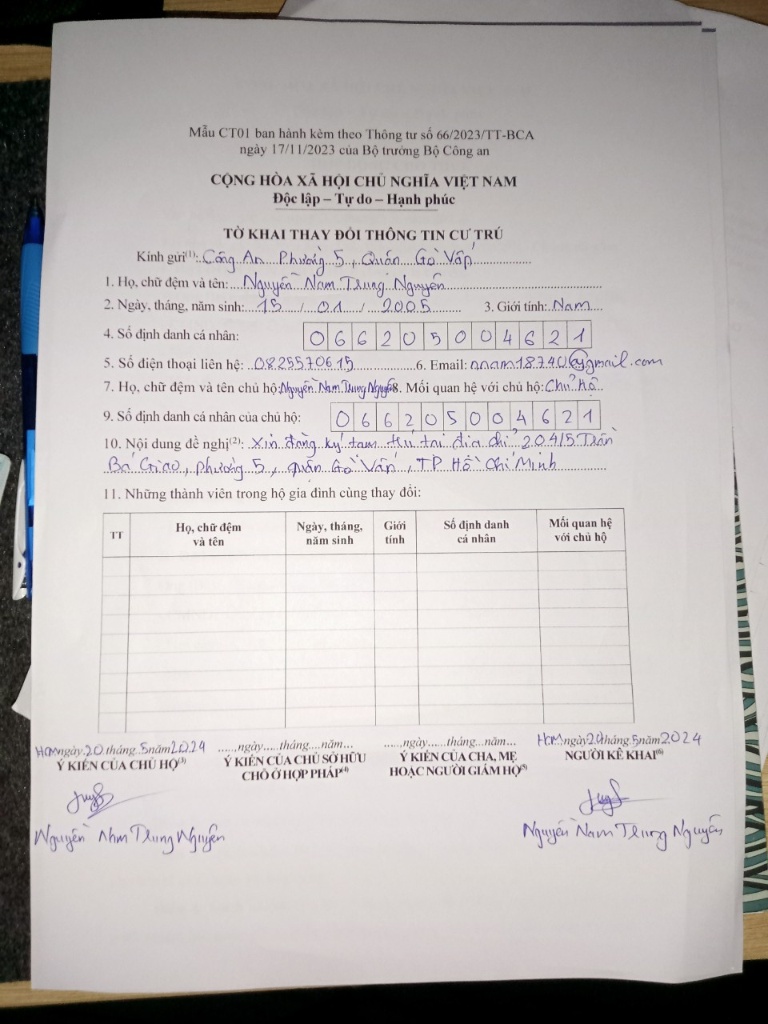 Mẫu CT01 ban hành kèm theo Thông tư số 66/2023/TT-BCA
ngày 17/11/2023 của Bộ trưởng Bộ Công an
CỘNG HÒA XÃ HỘI CHỦ NGHĨA VIỆT NAM
Độc lập – Tự do – Hạnh phúc
TỜ KHAI THAY ĐỔI THÔNG TIN CƯ TRÚ
Kính gửi(1): Công An Phường 5, Quận Gò Vấp
1. Họ, chữ đệm và tên: Nguyễn Nam Trung Nguyên
2. Ngày, tháng, năm sinh: 15 / 01 / 2005 3. Giới tính: Nam
4. Số định danh cá nhân: 066205004621
5. Số điện thoại liên hệ: 0825570615 6. Email: nnam18740@gmail.com
7. Họ, chữ đệm và tên chủ hộ: Nguyễn Nam Trung Nguyên 8. Mối quan hệ với chủ hộ: Chủ Hộ
9. Số định danh cá nhân của chủ hộ: 066205004621
10. Nội dung đề nghị(2): Xin đăng ký tạm trú tại địa chỉ 204/5 Trần
Bá Giao, phường 5, quận Gò Vấp, TP Hồ Chí Minh
11. Những thành viên trong hộ gia đình cùng thay đổi:
TT Họ, chữ đệm và tên Ngày, tháng, năm sinh Giới tính Số định danh cá nhân Mối quan hệ với chủ hộ
HCM ngày 20 tháng 5 năm 2024 ....., ngày......tháng....năm... ....., ngày......tháng....năm... HCM, ngày 20 tháng 5 năm 2024
Ý KIẾN CỦA CHỦ HỘ(3) Ý KIẾN CỦA CHỦ SỞ HỮU CHỖ Ở HỢP PHÁP(4) Ý KIẾN CỦA CHA, MẸ HOẶC NGƯỜI GIÁM HỘ(5) NGƯỜI KÊ KHAI(6)
Nguyễn Nam Trung Nguyên Nguyễn Nam Trung Nguyên